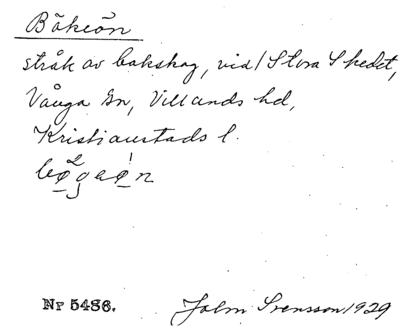 Bökeön
stråk av bokskog, vid Stora Skedet,
Vånga sn, Villands hd,
Kristianstads l.
Nr 5486.
John Svensson 1929